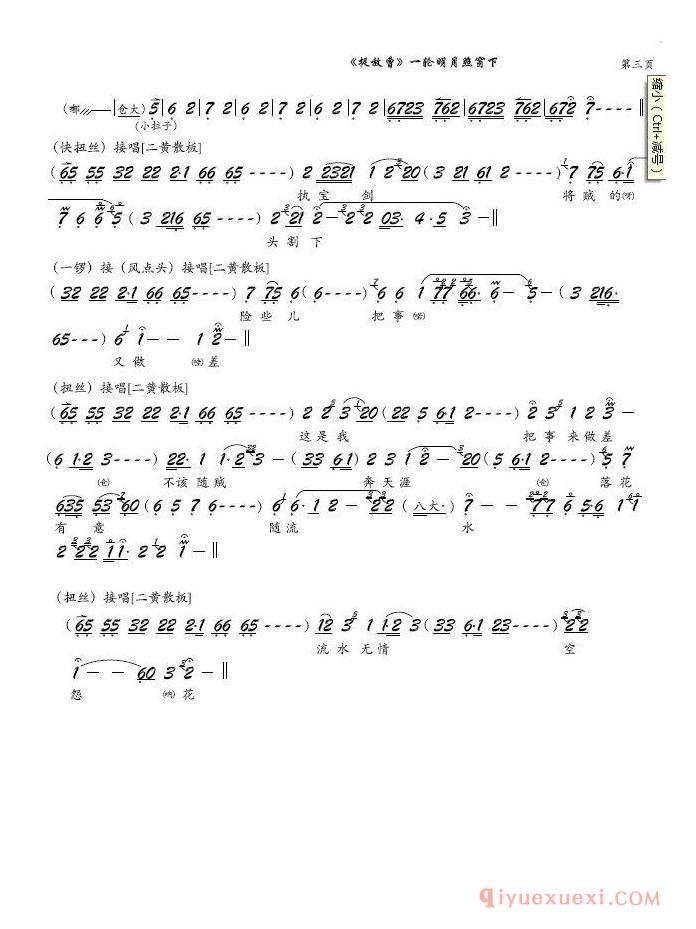 《捉放曹》一轮明月照窗下 第三页
缩小（Ctrl+减号）
（嘟 仓大）5 6 2 7 2 6 2 7 2 6 2 7 2 6723 762 6723 762 672 7----
（小拉子）
（快扭丝）接唱[二黄散板]
（65 55 32 22 2·1 66 65----）2 2321 1 2 20（32 21 61 2----）7 75 6·1
执宝剑 将贼的(呀)
7 6 6 5（3 216 65----）2 21 2-2 2 03· 4·5 3-
头割下
（一锣）接（风点头）接唱[二黄散板]
（32 22 2·1 66 65----）7 75 6（6----）6 6 1 77 66· 6-5-（3 216·
险些儿 把事(喏)
65---）6 1-- 1 2-
又做 (哇)差
（扭丝）接唱[二黄散板]
（65 55 32 22 2·1 66 65----）2 2 3 20（22 5 6·1 2----）2 3 1 2 3-
这是我 把事来做差
（6 1·2 3----）22· 1 1·2 3-（33 6·1）2 3 1 2-20（5 6·1 2----）5 7
(仓) 不该随贼 奔天涯 (仓) 落花
635 53 60（6 5 7 6----）6 6· 1 2-22（八大·）7-77 6 5·6 1 1
有意 随流 水
2 22 11· 2 2 1-
（扭丝）接唱[二黄散板]
（65 55 32 22 2·1 66 65----）12 3 1 1·2 3（33 6·1 23----）22
流水无情 空
1-- 60 3 2-
怨 (呐)花
qiyuexuexi.com